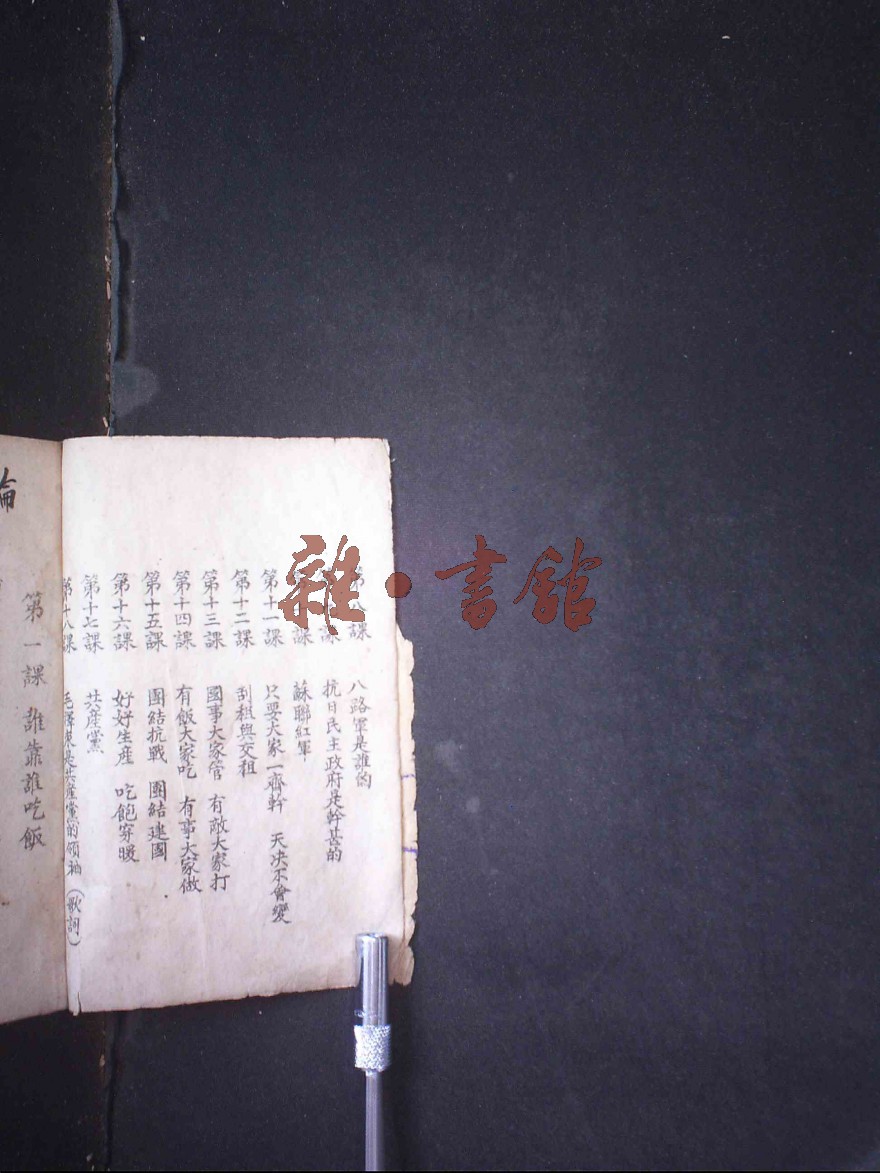 第八課 八路軍是誰的
課 抗日民主政府是幹甚的
第 課 蘇聯紅軍
第十一課 只要大家一齊幹 天决不會變
第十二課 刮租與交租
第十三課 國事大家管 有敵大家打
第十四課 有飯大家吃 有事大家做
第十五課 團結抗戰 團結建國
第十六課 好好生產 吃飽穿暖
第十七課 共產黨
第十八課 毛澤東是共產黨的領袖(歌詞)
第一課 誰靠誰吃飯
雜·書館